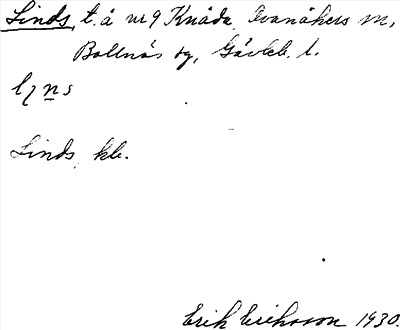 Linds, t. å nr 9 Knåda, Ovanåkers sn,
Bollnäs sg, Gävleb. l.
Linds, kb.
Erik Eriksson 1930.